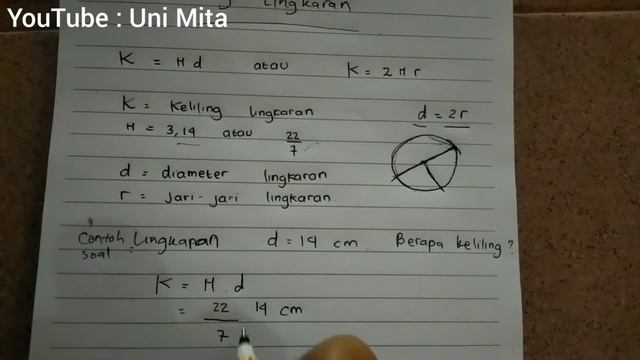 YouTube : Uni Mita
lingkaran
K = π d atau K = 2 π r
K = Keliling lingkaran
π = 3,14 atau 22/7
d = 2r
d = diameter lingkaran
r = jari-jari lingkaran
Contoh soal : Lingkaran d = 14 cm. Berapa keliling?
K = π . d
= 22/7 14 cm